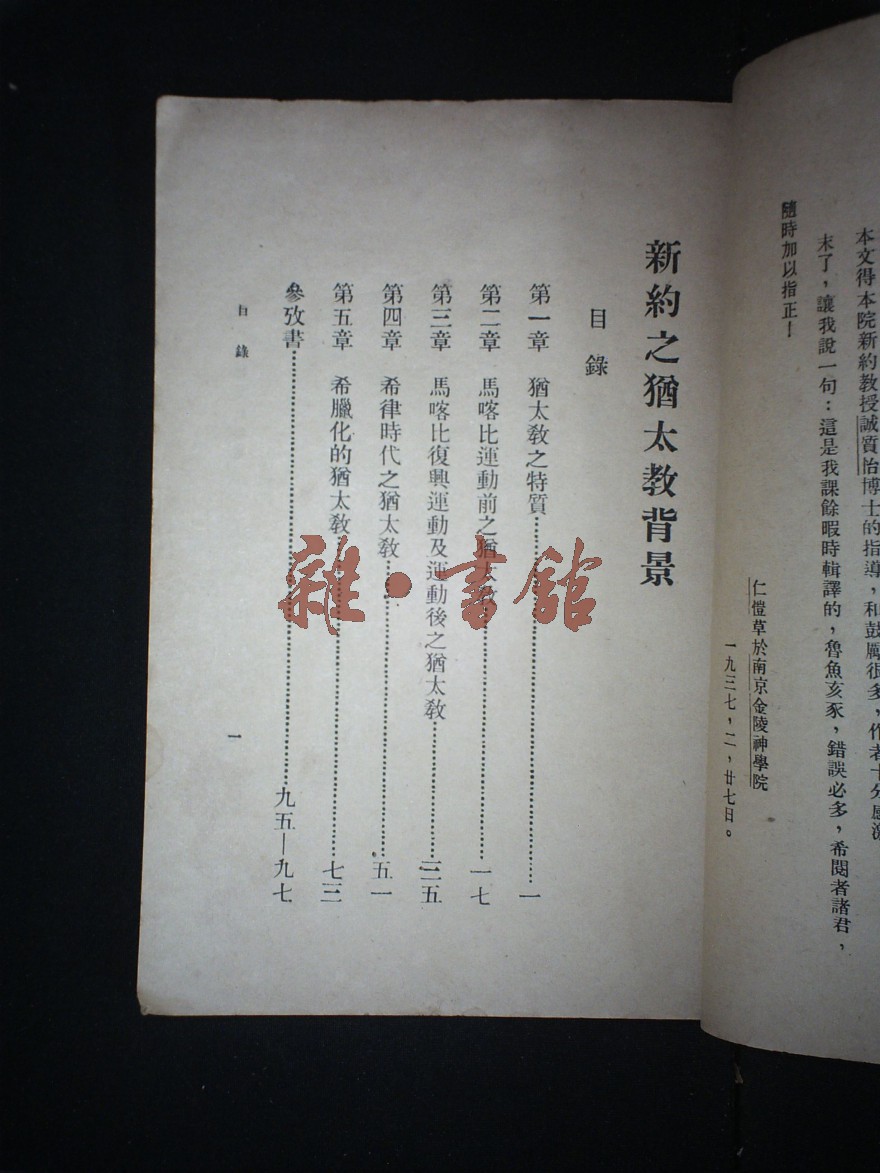 本文得本院新約教授誠質怡博士的指導，和鼓勵很多，作者十分感激
末了，讓我說一句：這是我課餘暇時輯譯的，魯魚亥豕，錯誤必多，希閱者諸君，
隨時加以指正！
仁愷草於南京金陵神學院
一九三七，二，廿七日。
新約之猶太教背景
目錄
第一章　猶太教之特質……一
第二章　馬喀比運動前之猶太教……一七
第三章　馬喀比復興運動及運動後之猶太教……三五
第四章　希律時代之猶太教……五一
第五章　希臘化的猶太教……七三
參攷書……九五—九七
目錄
一
雜·書館